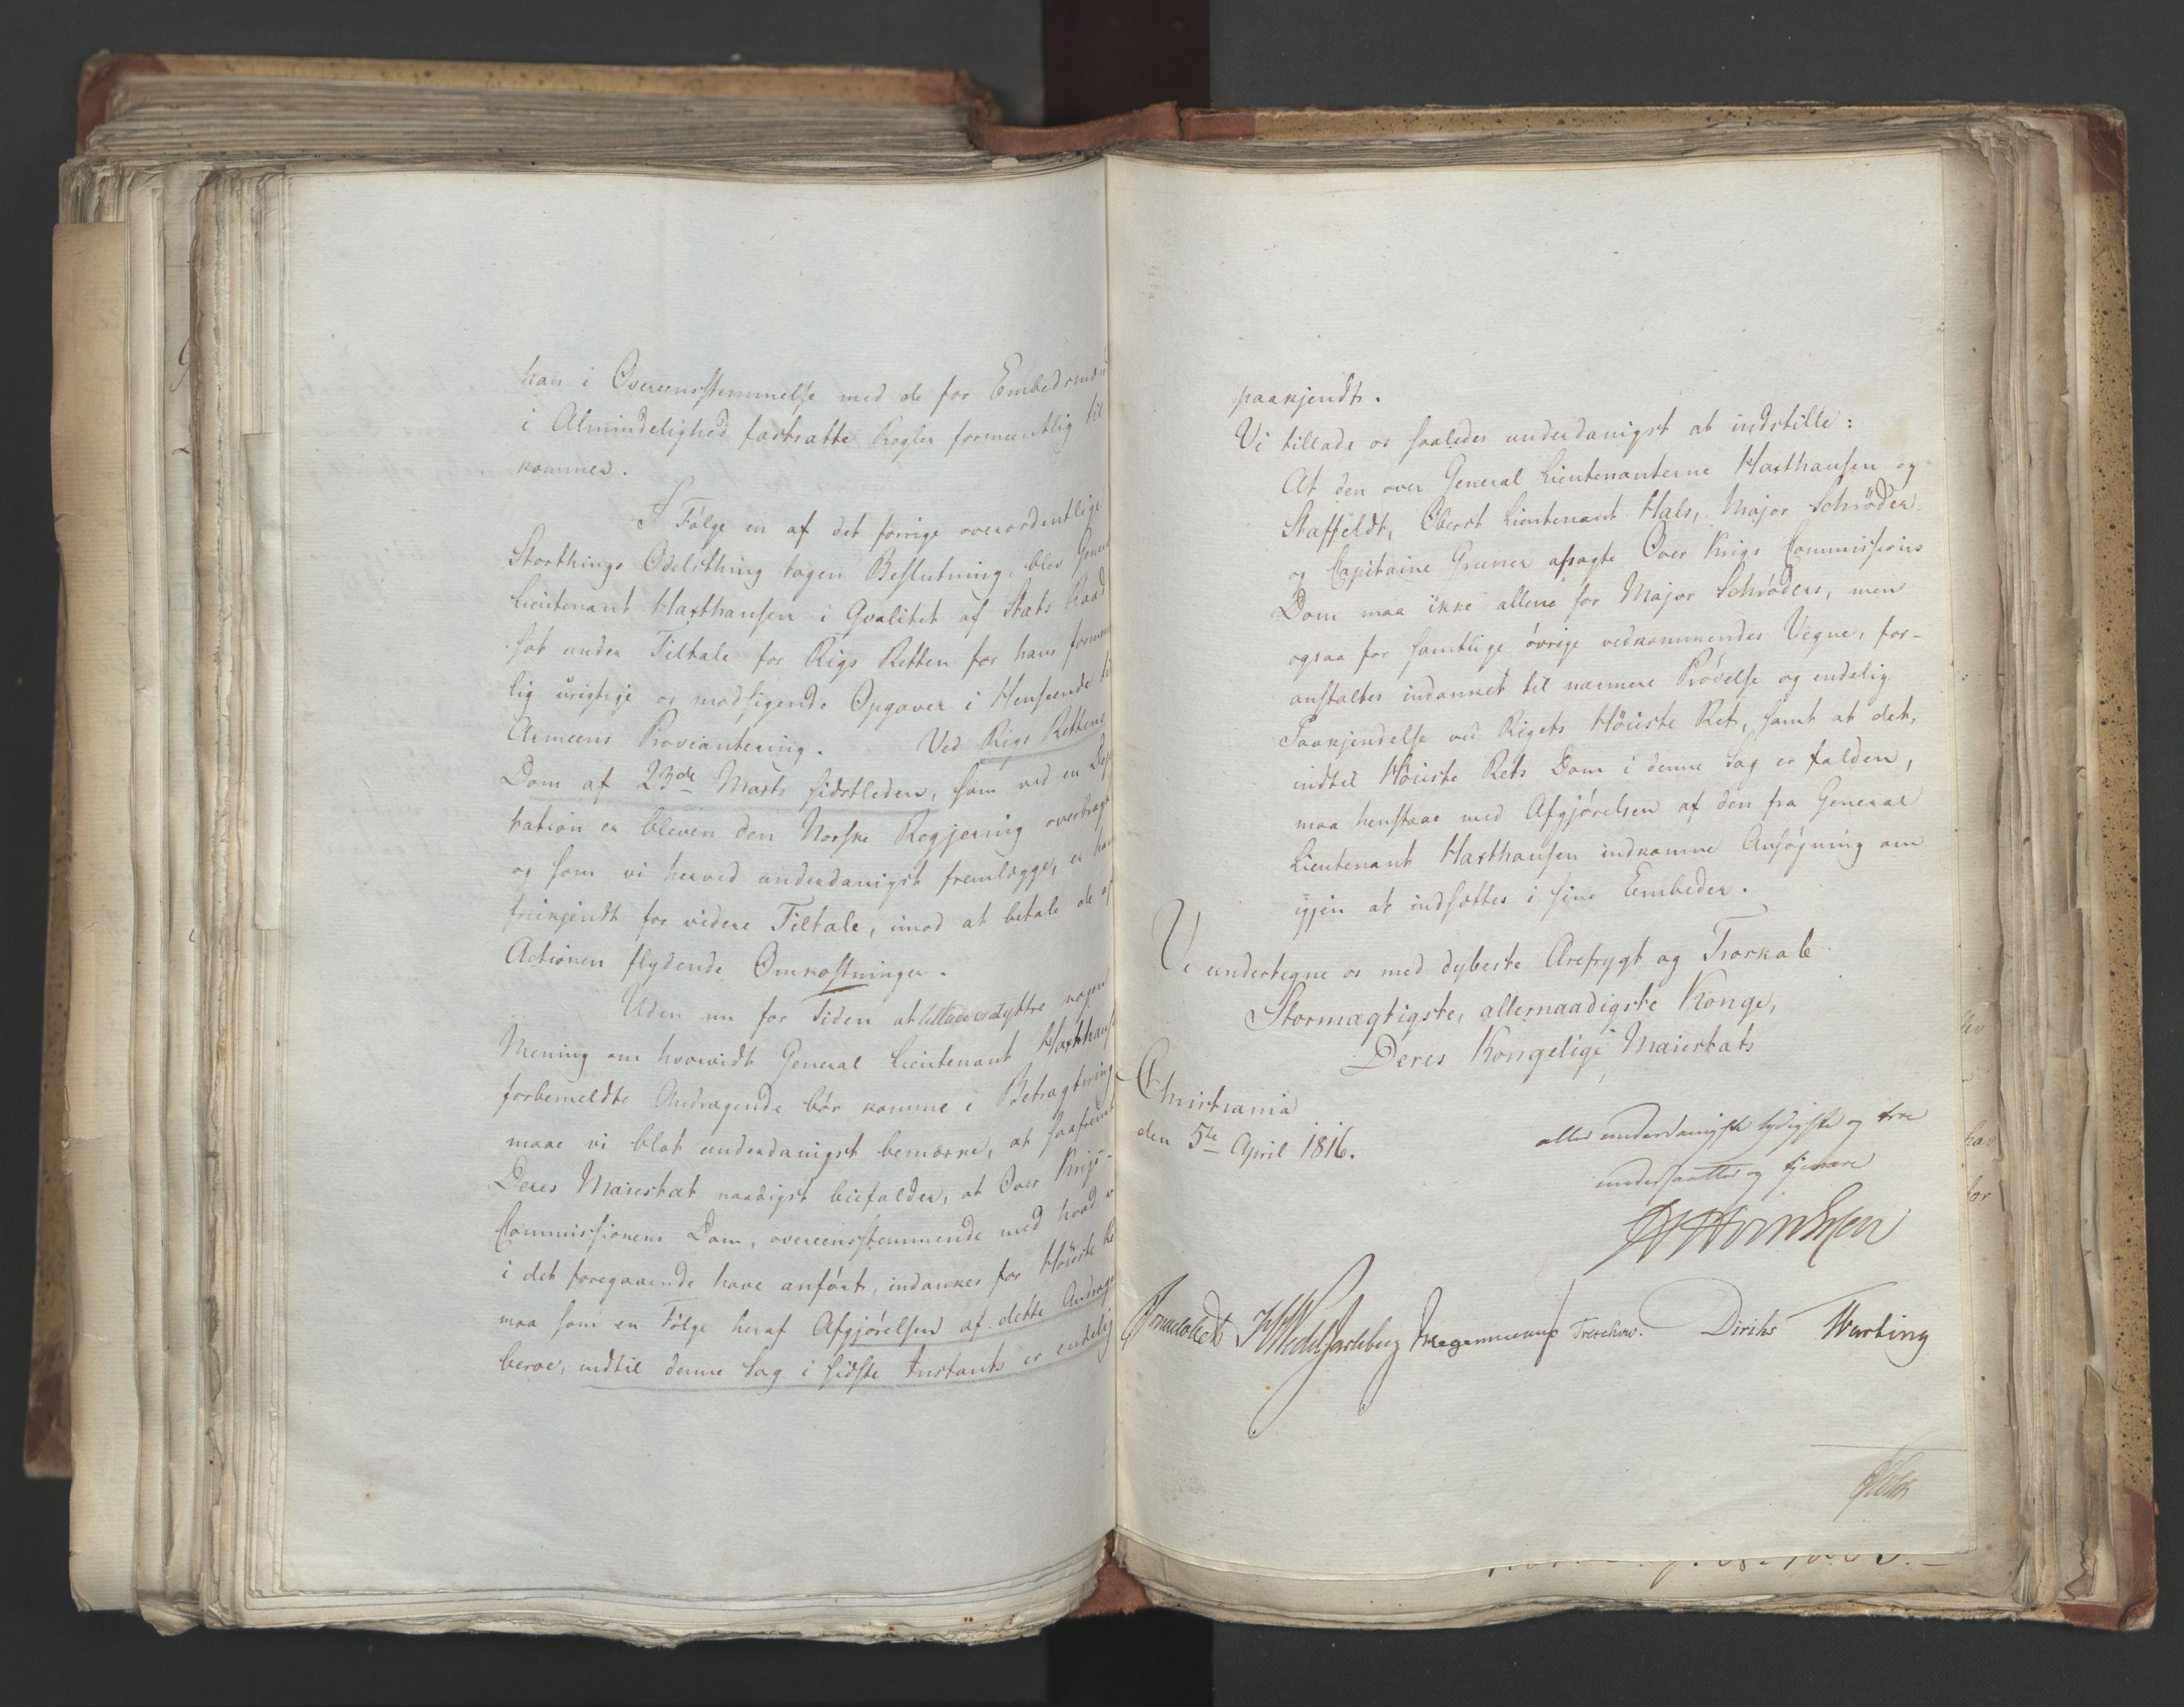 han i Overeensstemmelse med de for Embedsmænd
i Almindelighed fastsatte Regler formeentlig til
kommer.
I Følge en af det forrige overordentlige
Storthings Odelsthing tagen Beslutning, blev General
Lieutenant Haxthausen i Qvalitet af Stats Raad
sat under Tiltale for Rigs Retten for hans formeent
lig urigtige og modsigende Opgaver i Henseende til
Armeens Proviantering. Ved Rigs Rettens
Dom af 23de Marts sidstleden, som ved en Depu
tation er bleven den Norske Regjering overbragt
og som vi herved underdanigst fremlægge, er han
friekjendt for videre Tiltale, imod at betale de af
Actionen flydende Omkostninger.
Uden nu for Tiden at tillade os at yttre nogen
Mening om hvorvidt General Lieutenant Haxthausens
forbemeldte Andragende bør komme i Betragtning
maae vi blot underdanigst bemærke, at saafremt
Deres Maiestæt naadigst biefalder, at Over Krigs-
Commissionens Dom, overeensstemmende med hvad vi
i det foregaaende have anført, indankes for Höieste Ret
maa som en Følge heraf Afgjörelsen af dette Andrage
beroe, indtil denne Sag i sidste Instants er endelig
paakjendt.
Vi tillade os saaledes underdanigst at indstille:
At den over General Lieutenanterne Haxthausen og
Staffeldt, Oberst Lieutenant Hals, Major Schröder
og Capitaine Gruner afsagte Over Krigs Commissions
Dom maa ikke allene for Major Schröders, men
ogsaa for samtlige øvrige vedkommendes Vegne, for-
anstaltes indanket til nærmere Prövelse og endelig
Paakjendelse ved Rigets Höieste Ret, samt at det,
indtil Höieste Rets Dom i denne Sag er falden,
maa henstaae med Afgjörelsen af den fra General
Lieutenant Haxthausen indkomne Ansögning om
igjen at indsættes i sine Embeder.
Vi undertegne os med dybeste Ærefrygt og Troskab
Stormægtigste, allernaadigste Konge,
Deres Kongelige Maiestæts
Christiania
den 5te April 1816.
aller underdanigste lydigste og troe
undersaatter og tjenere
Sommerhielm HWedel Jarlsberg Krogemann Treschow. Diriks Motzfeldt